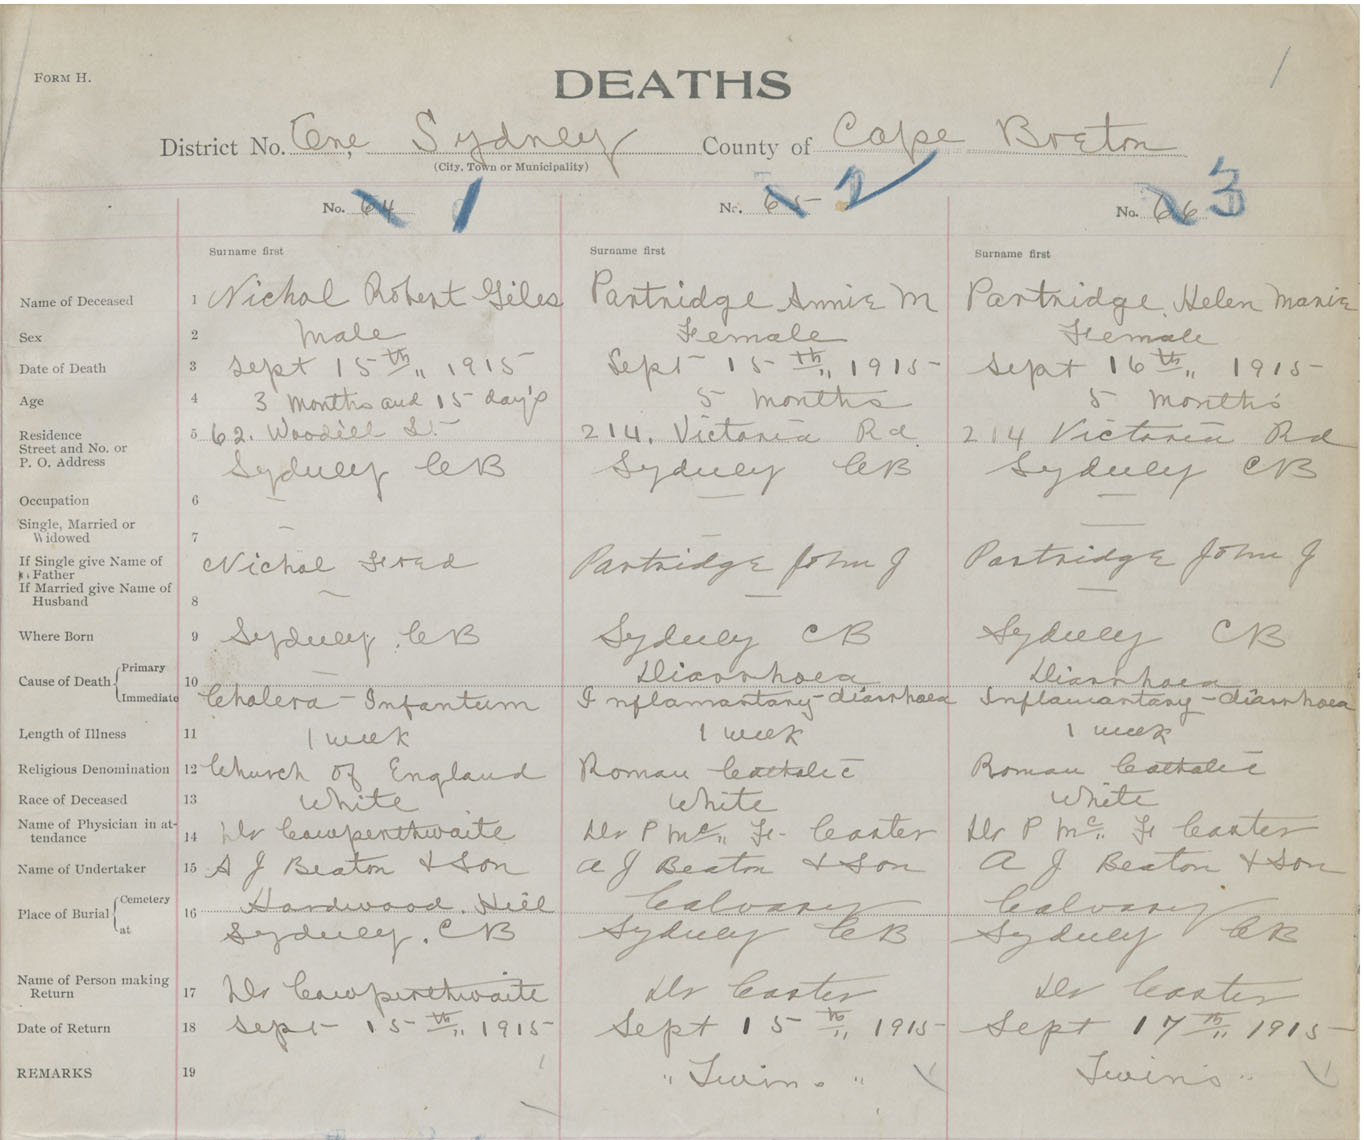 FORM H.
DEATHS
District No. One, Sydney County of Cape Breton
(City, Town or Municipality)
No. 64 1 No. 65 2 No. 66 3
Surname first Surname first Surname first
Name of Deceased 1 Nichol Robert Giles Partridge Annie M Partridge Helen Marie
Sex 2 Male Female Female
Date of Death 3 Sept 15th 1915 Sept 15th 1915 Sept 16th 1915
Age 4 3 Months and 15 day's 5 Months 5 Months
Residence 5 62. Woodill St. 214. Victoria Rd 214 Victoria Rd
Street and No. or
P. O. Address Sydney CB Sydney CB Sydney CB
Occupation 6 — — —
Single, Married or
Widowed 7 — — —
If Single give Name of Father Nichol Fred Partridge John J Partridge John J
If Married give Name of
Husband 8 — — —
Where Born 9 Sydney. CB Sydney CB Sydney CB
Cause of Death Primary 10 — Diarrhoea Diarrhoea
Immediate Cholera - Infantum Inflamantary-diarrhoea Inflamantary-diarrhoea
Length of Illness 11 1 week 1 week 1 week
Religious Denomination 12 Church of England Roman Catholic Roman Catholic
Race of Deceased 13 White White White
Name of Physician in attendance 14 Dr Cowperthwaite Dr P Mc. F. Carter Dr P Mc. F Carter
Name of Undertaker 15 A J Beaton & Son A J Beaton & Son A J Beaton & Son
Place of Burial Cemetery 16 Hardwood Hill Calvary Calvary
at Sydney. CB Sydney CB Sydney CB
Name of Person making
Return 17 Dr Cowperthwaite Dr Carter Dr Carter
Date of Return 18 Sept 15th 1915 Sept 15th 1915 Sept 17th 1915
REMARKS 19 "Twins" Twins"